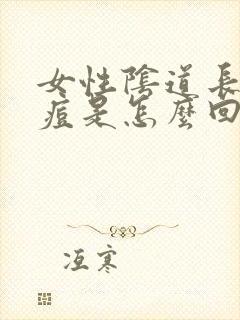 女性陰道長
痘是怎麼回
冱寒